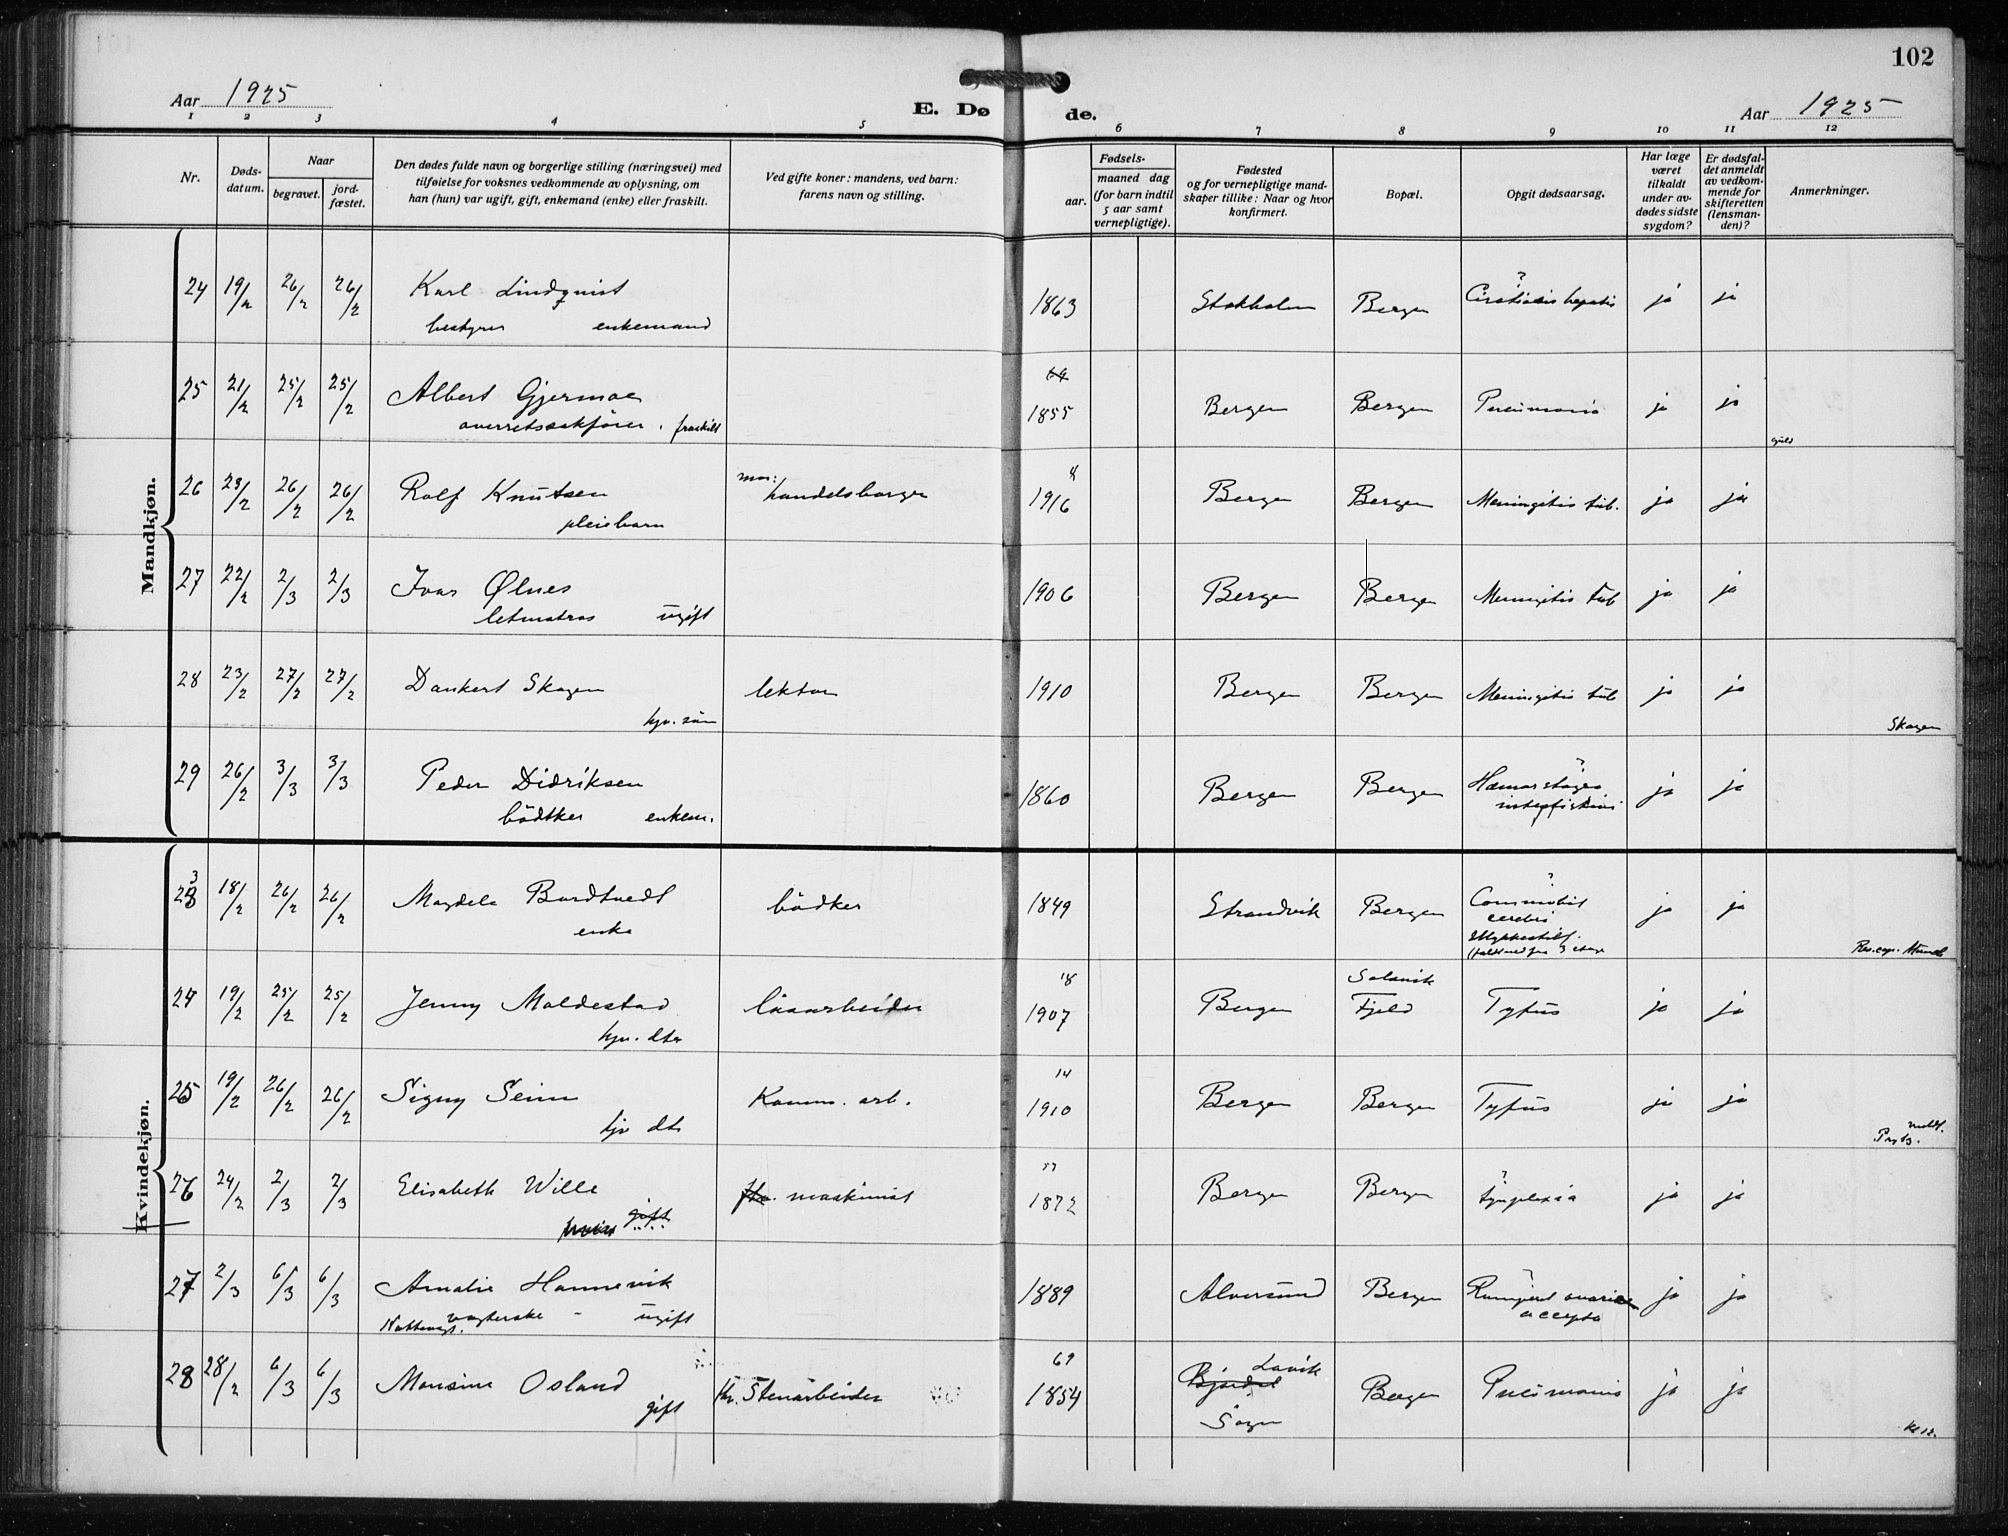 102
Aar 1925
E. Dø de.
Aar 1925
1 2 3 4 5 6 7 8 9 10 11 12
Nr.
Døds-
datum.
Naar
begravet.
jord-
fæstet.
Den dødes fulde navn og borgerlige stilling (næringsvei) med
tilføielse for voksnes vedkommende av oplysning, om
han (hun) var ugift, gift, enkemand (enke) eller fraskilt.
Ved gifte koner: mandens, ved barn:
farens navn og stilling.
Fødsels-
aar.
maaned dag
(for barn indtil
5 aar samt
vernepligtige).
Fødested
og for vernepligtige mand-
skaper tillike: Naar og hvor
konfirmert.
Bopæl.
Opgit dødsaarsag.
Har læge
været
tilkaldt
under av-
dødes sidste
sygdom?
Er dødsfal-
det anmeldt
av vedkom-
mende for
skifteretten
(lensman-
den)?
Anmerkninger.
Mandkjøn.
24 19/2 26/2 26/2 Karl Lindqvist 1863 Stokholm Bergen ? hepatis ja ja
bestyrer enkemand
25 21/2 25/2 25/2 Albert Gjermoe 69 1855 Bergen Bergen Pneumonia ja ja
overretssakfører. fraskilt
26 23/2 26/2 26/2 Rolf Knutsen mor: handelsborger 8 1916 Bergen Bergen Meningitis tub. ja ja
pleiebarn
27 22/2 2/3 2/3 Ivar Ølnes 1906 Bergen Bergen Meningitis tub ja ja
letmatros ugift
28 23/2 27/2 27/2 Dankert Skagen lektor 1910 Bergen Bergen Meningitis tub ja ja
hjv. søn Skagen
29 26/2 3/3 3/3 Peder Didriksen 1860 Bergen Bergen ? ja ja
bødtker enkem.
Kvindekjøn.
23 18/2 26/2 26/2 Magdele Bordtvedt bødker 1849 Strandvik Bergen ? Commotio ja ja
enke cerebri
Ulykkestilf.
(faldt ned fra 3 etage
Res. cap.
24 19/2 25/2 25/2 Jenny Moldestad løsarbeider 18 1907 Bergen Solsvik Fjeld Tyfus ja ja
hjv. dtr
25 19/2 26/2 26/2 Signy Seim Komm. arb. 14 1910 Bergen Bergen Tyfus ja ja
hjv dtr
26 24/2 2/3 2/3 Elisabeth Wille maskinist 1872 Bergen Bergen ? ja ja
gift
27 2/3 6/3 6/3 Amalie Hannevik 1889 Alversund Bergen ? ja ja
Nattevagt. vagterske - ugift
28 28/2 6/3 6/3 Monsine Osland Stenarbeider 69 1854 Lavik Bergen Pneumonia ja ja
gift Sogn
Kl 12.